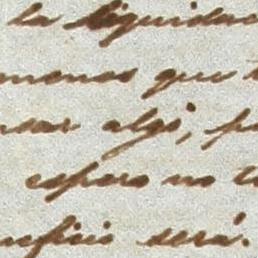 la liquidac
menos que
sar algo, p
espero no t
neficio será.